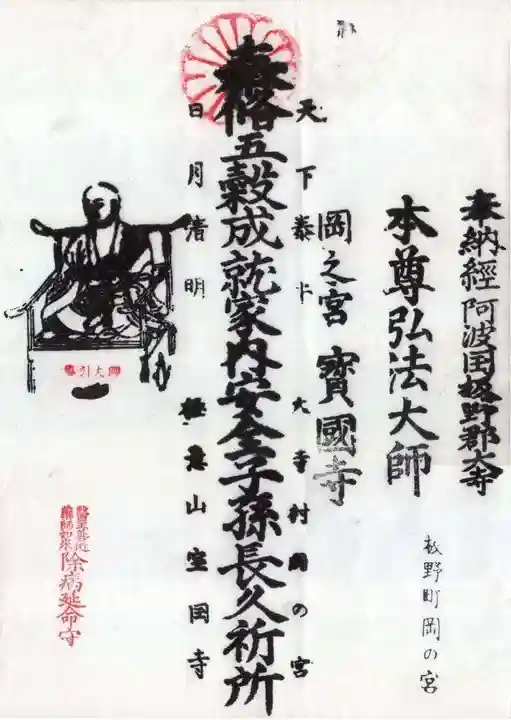 奉納經阿波国板野郡大寺
板野町岡の宮
本尊弘法大師
岡之宮寶國寺
天下泰平大寺村岡の宮
五穀成就家内安全子孫長久祈所
日月清明
山宝国寺
除病延命守